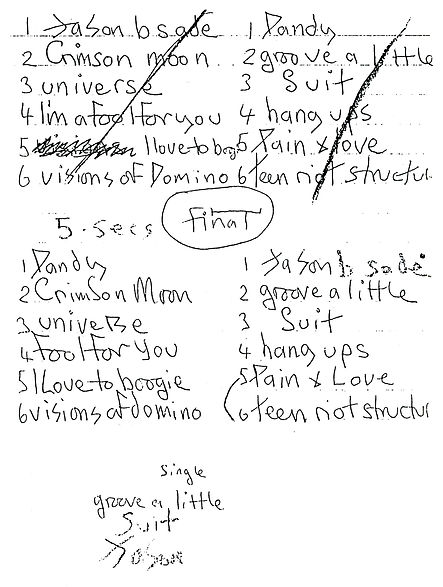 1 Jason b sade
2 Crimson moon
3 universe
4 I'm a fool for you
5 I love to boogi
6 visions of Domino
1 Dandy
2 groove a little
3 Suit
4 hang ups
5 Pain & love
6 teen riot structur
5 . Secs
final
1 Dandy
2 Crimson Moon
3 universe
4 Fool For You
5 I Love to boogie
6 visions of domino
1 Jason b sade
2 groove a little
3 Suit
4 hang ups
5 Pain & Love
6 teen riot structur
single
groove a little
Suit
Jason